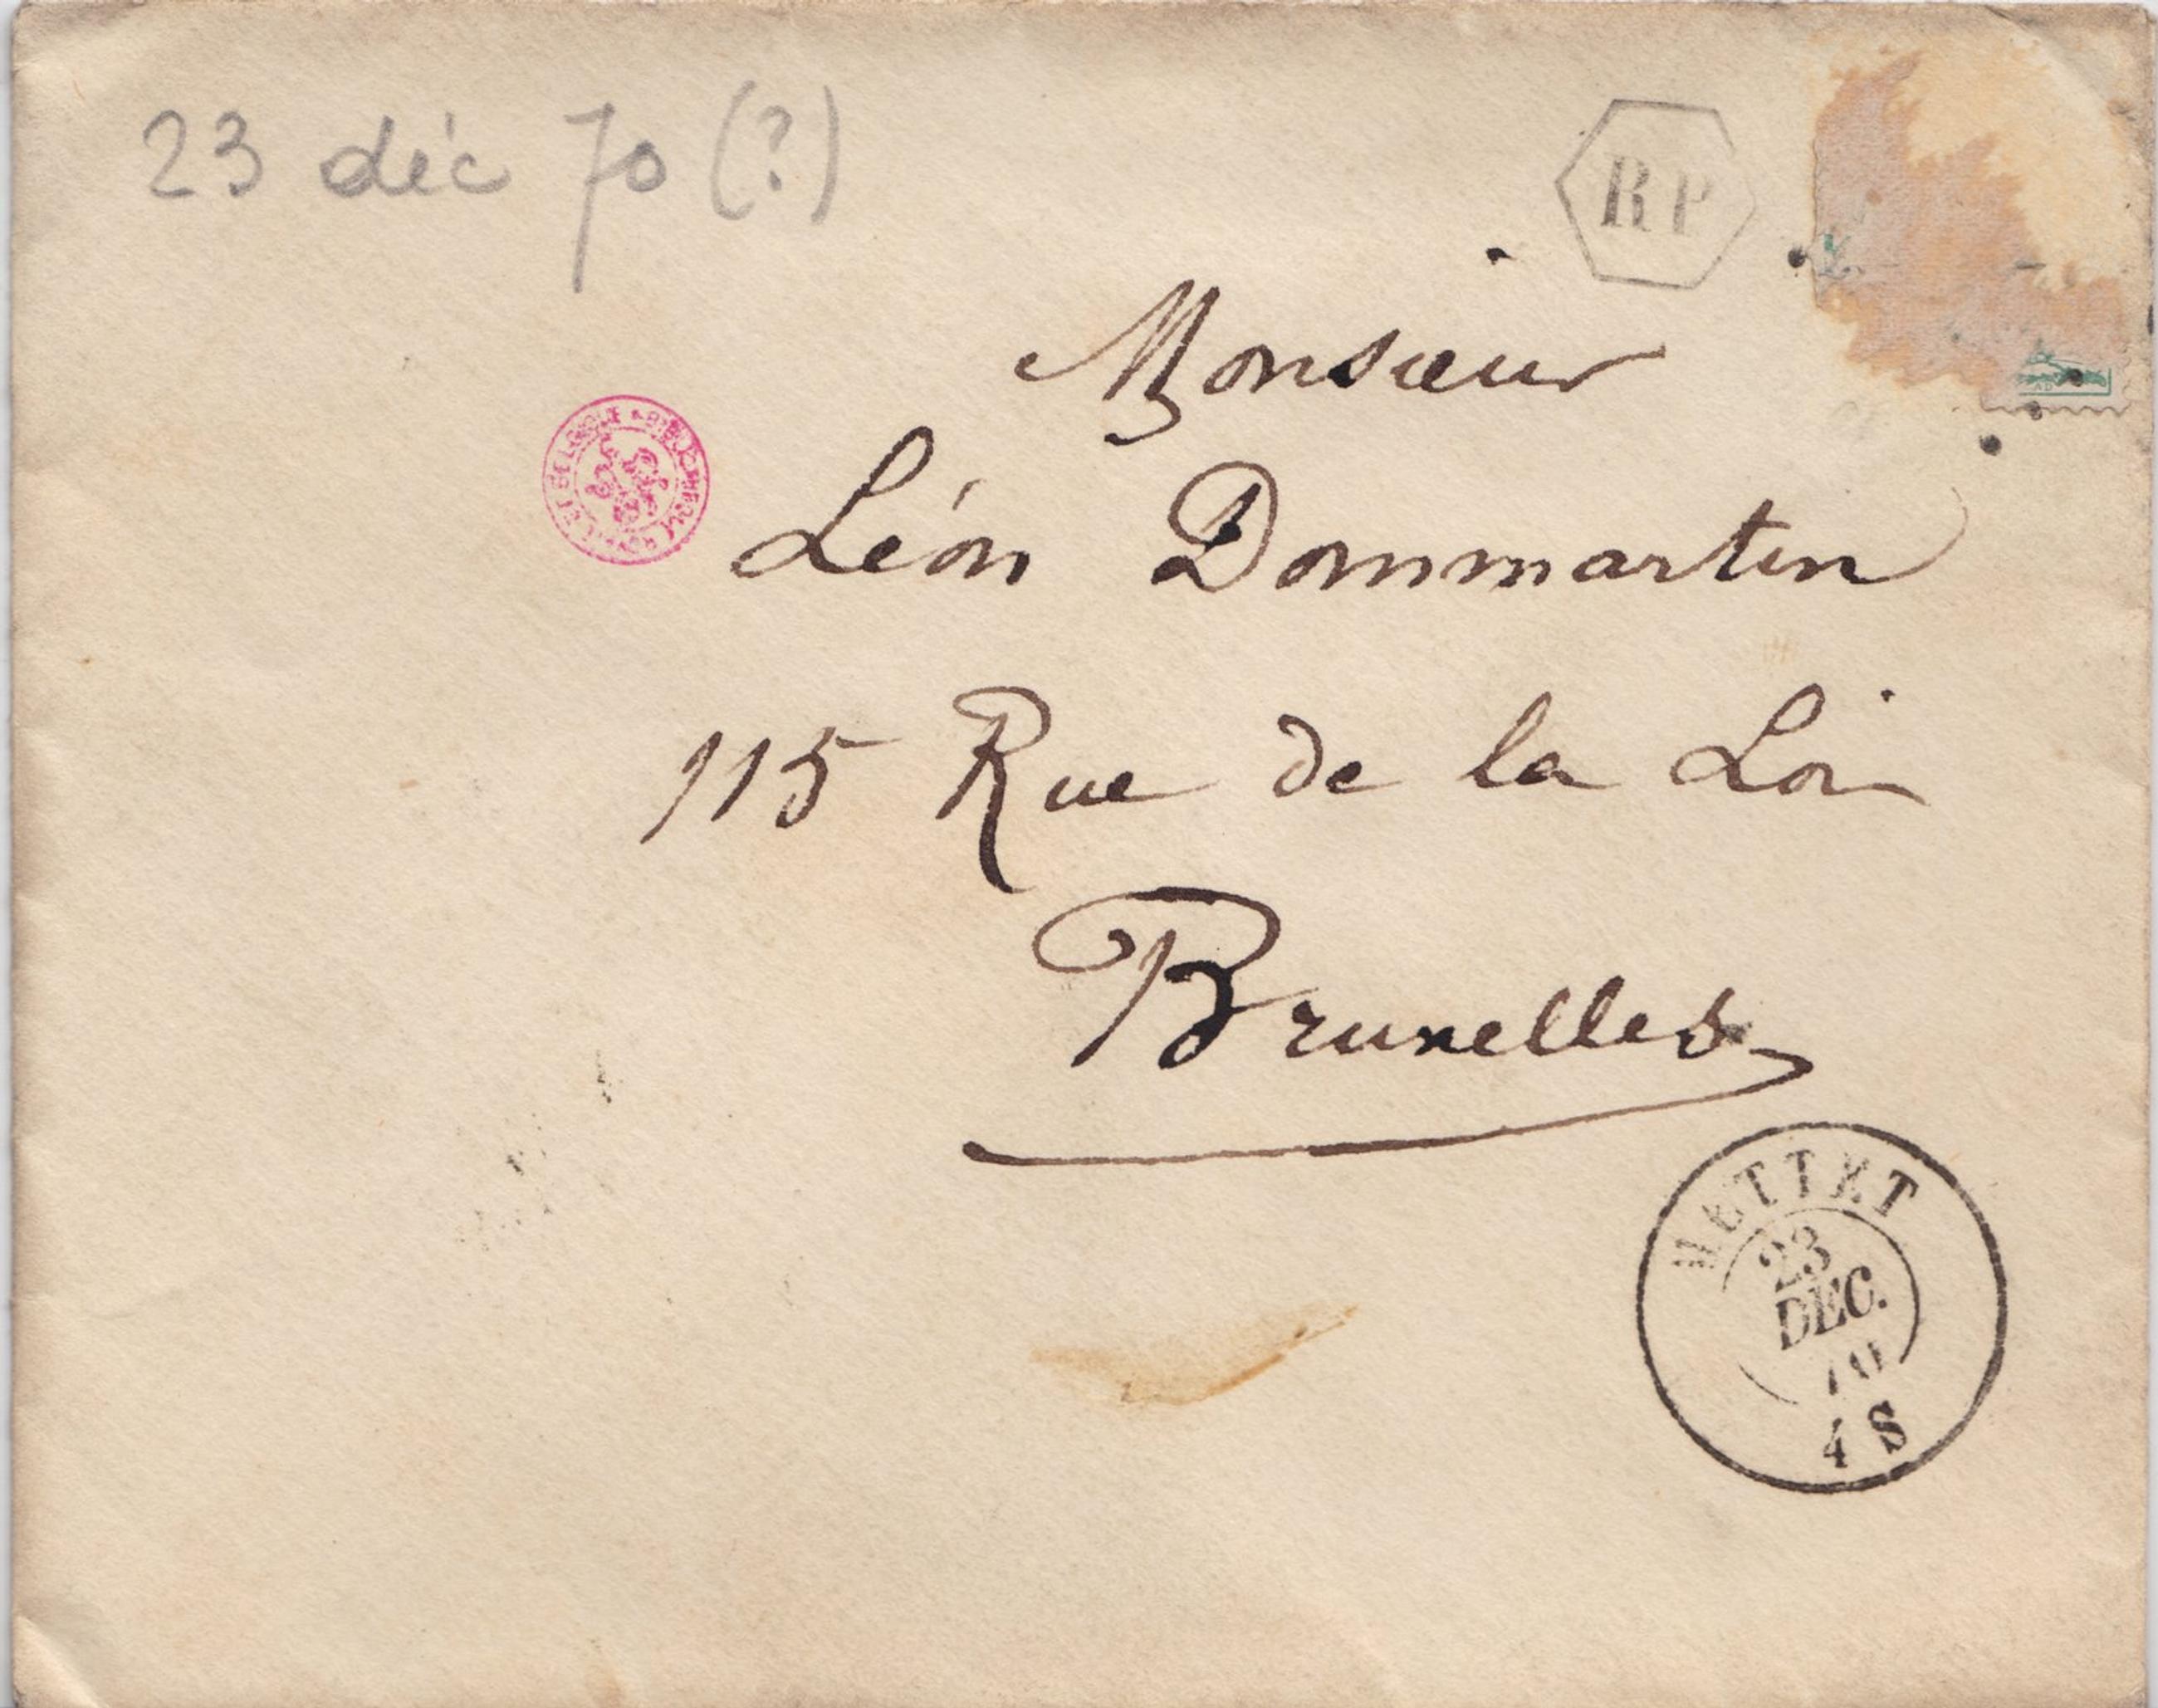 23 déc 70 (?)
RP
Monsieur
Léon Dommartin
115 Rue de la Loi
Bruxelles
BIBLIOTHÈQUE ROYALE DE BELGIQUE
METTET
23
DEC.
70
4 S